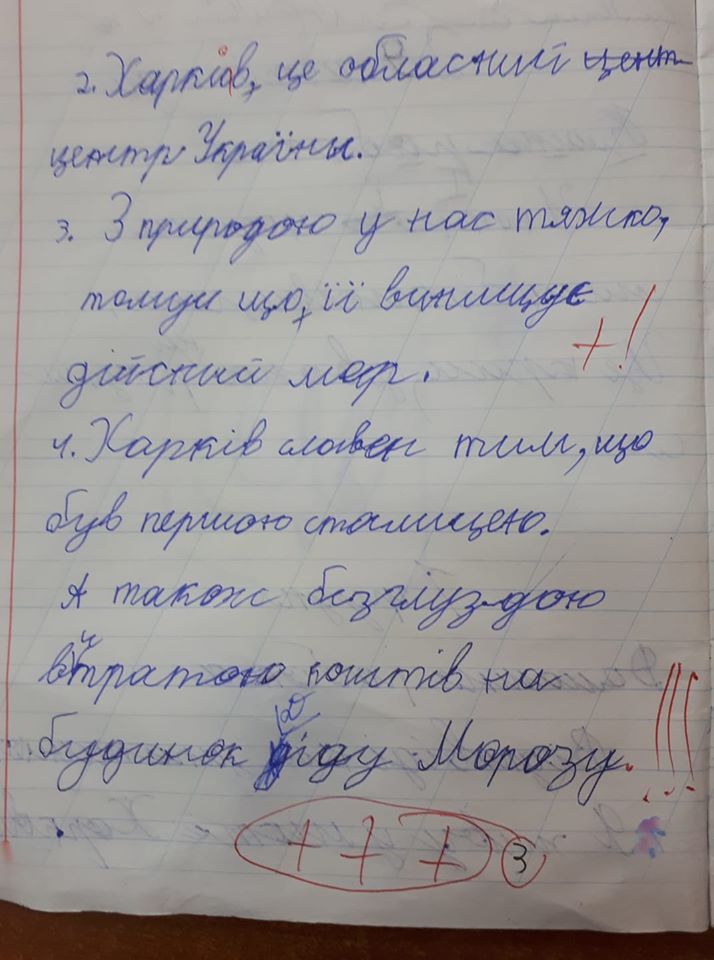 2. Харків, це обласний цент
центр Украïны.
3. З природою у нас тяжко,
тому що, її винищує
дійсний мер.
+!
4. Харків славен тим, що
був першою столицею.
А також безглуздою
витратою коштів на
будинок Діду Морозу. !!!
+ + + 3